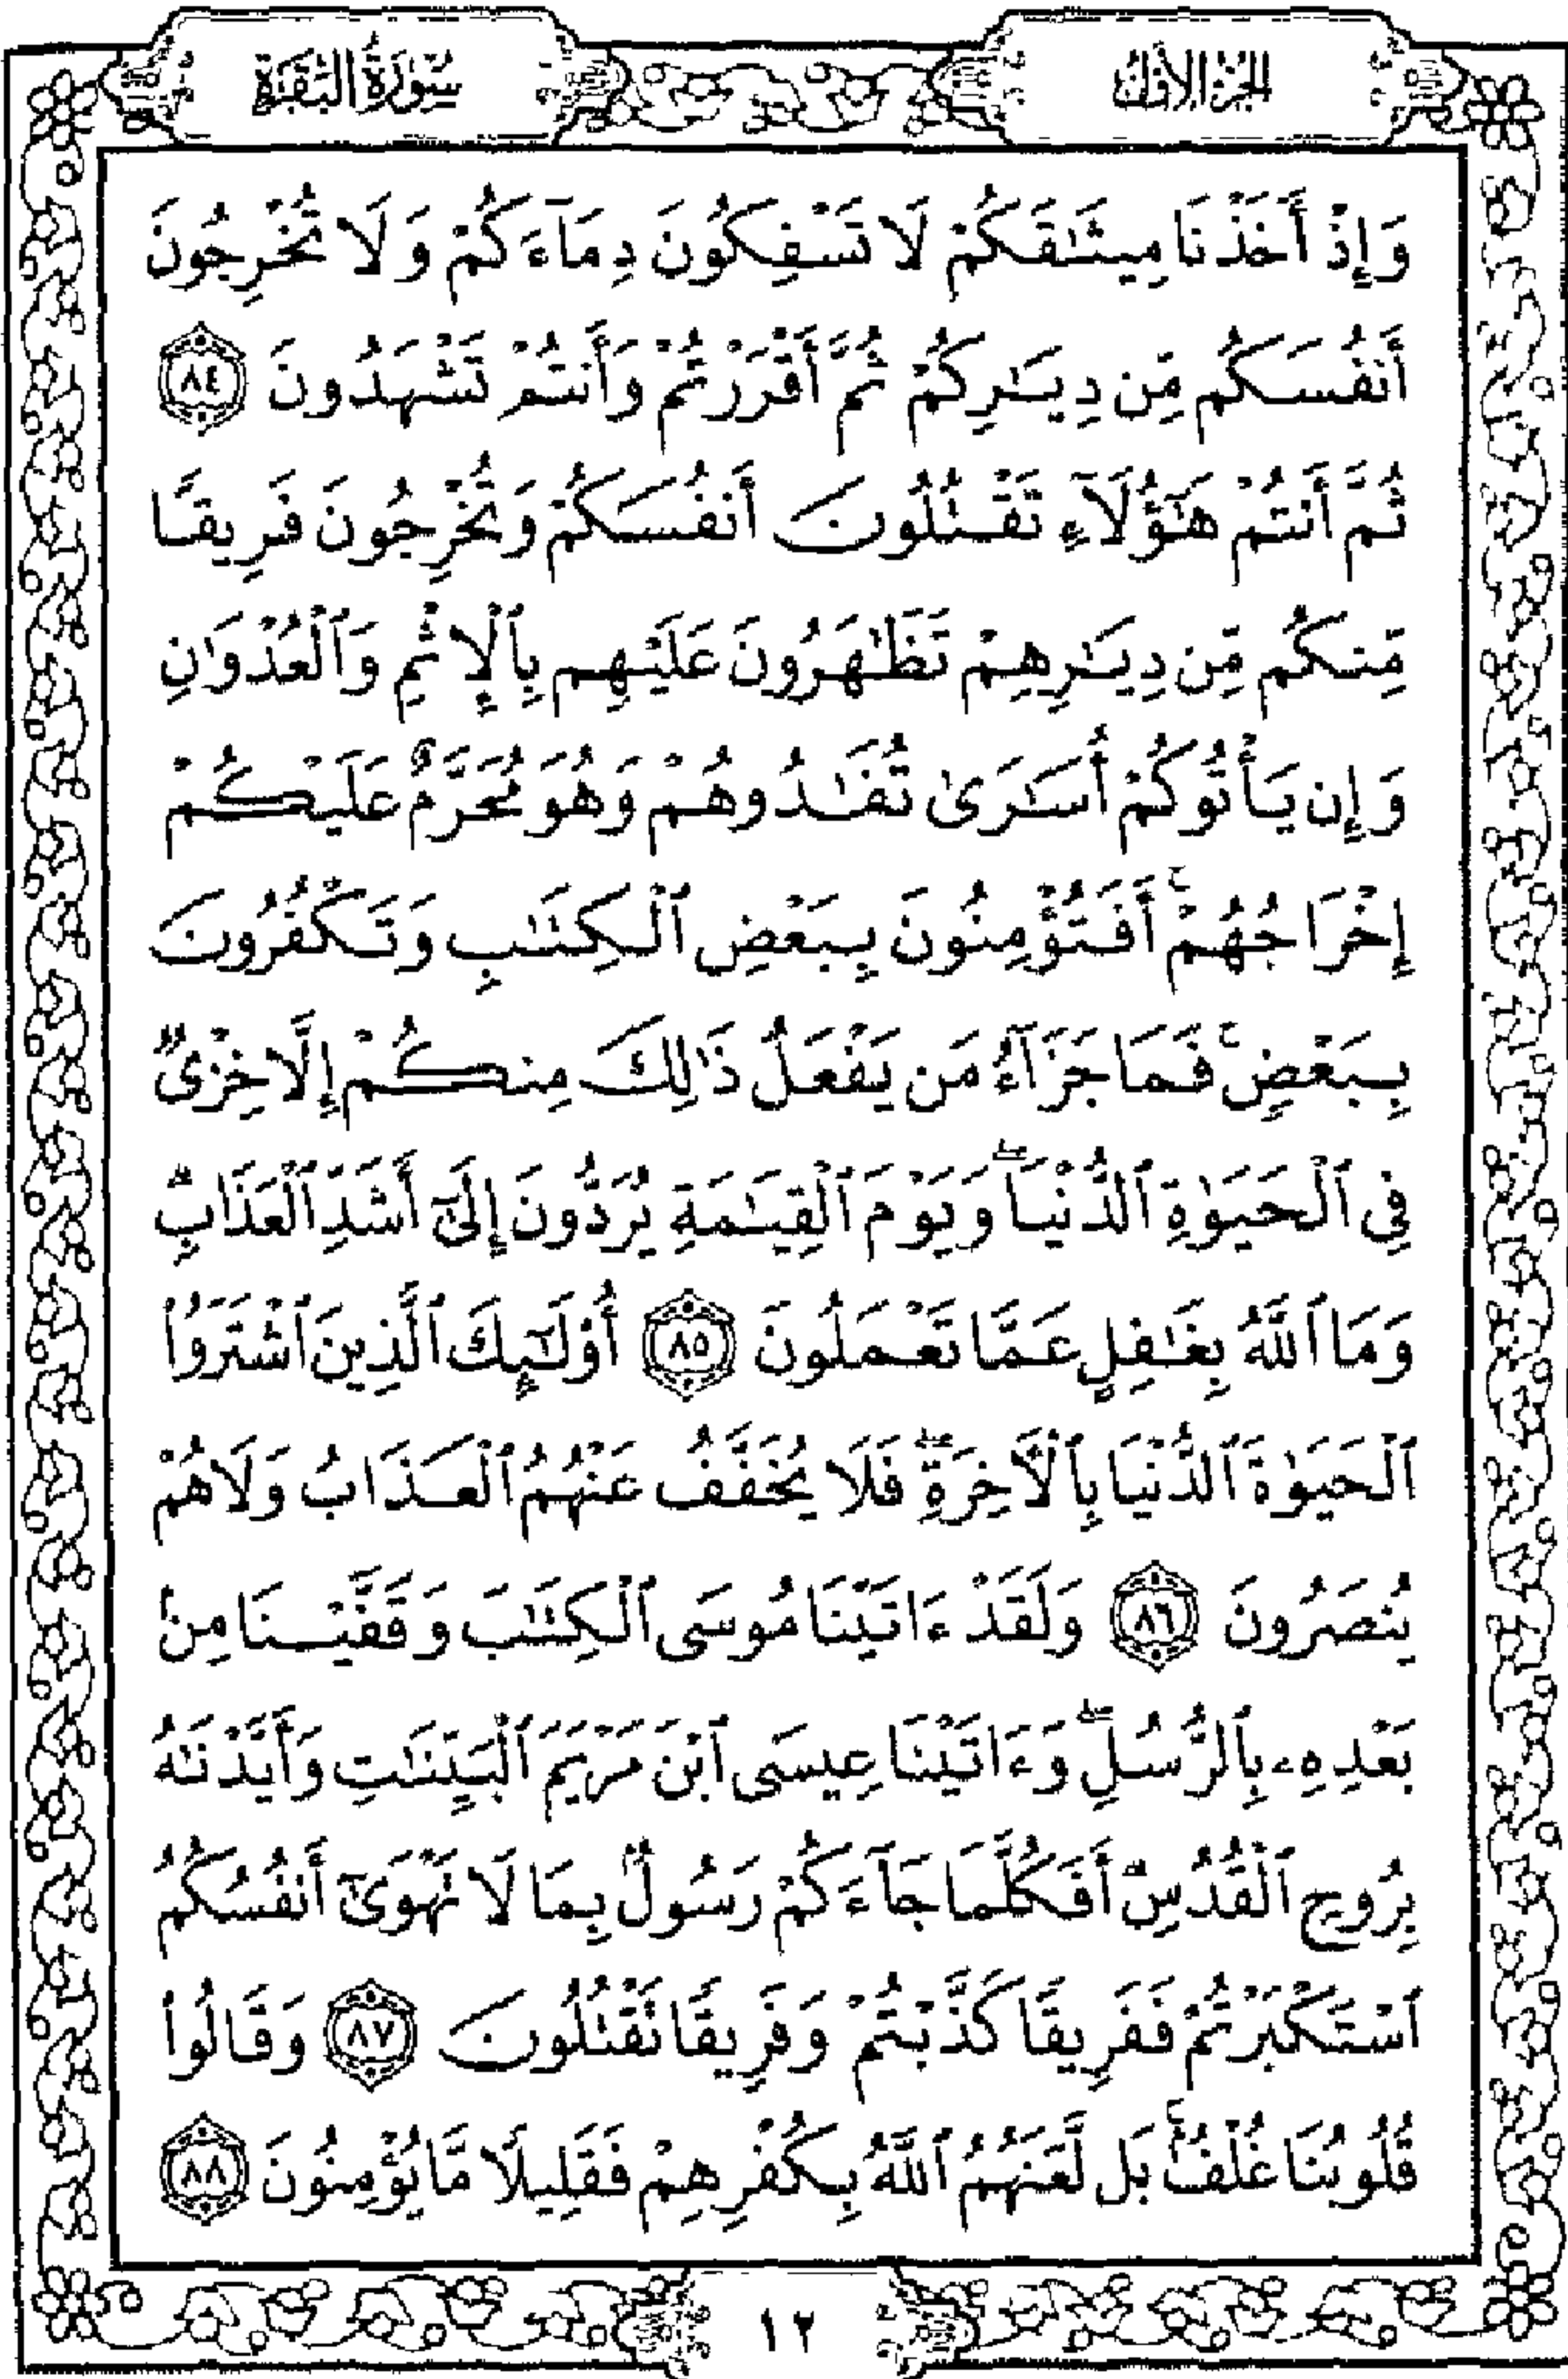 الجزء الأول
سورة البقرة
وَإِذْ أَخَذْنَا مِيثَٰقَكُمْ لَا تَسْفِكُونَ دِمَآءَكُمْ وَلَا تُخْرِجُونَ
أَنفُسَكُم مِّن دِيَٰرِكُمْ ثُمَّ أَقْرَرْتُمْ وَأَنتُمْ تَشْهَدُونَ ٨٤
ثُمَّ أَنتُمْ هَٰٓؤُلَآءِ تَقْتُلُونَ أَنفُسَكُمْ وَتُخْرِجُونَ فَرِيقًا
مِّنكُم مِّن دِيَٰرِهِمْ تَظَٰهَرُونَ عَلَيْهِم بِٱلْإِثْمِ وَٱلْعُدْوَٰنِ
وَإِن يَأْتُوكُمْ أُسَٰرَىٰ تُفَٰدُوهُمْ وَهُوَ مُحَرَّمٌ عَلَيْكُمْ
إِخْرَاجُهُمْ ۚ أَفَتُؤْمِنُونَ بِبَعْضِ ٱلْكِتَٰبِ وَتَكْفُرُونَ
بِبَعْضٍ ۚ فَمَا جَزَآءُ مَن يَفْعَلُ ذَٰلِكَ مِنكُمْ إِلَّا خِزْىٌ
فِى ٱلْحَيَوٰةِ ٱلدُّنْيَا ۖ وَيَوْمَ ٱلْقِيَٰمَةِ يُرَدُّونَ إِلَىٰٓ أَشَدِّ ٱلْعَذَابِ ۗ
وَمَا ٱللَّهُ بِغَٰفِلٍ عَمَّا تَعْمَلُونَ ٨٥ أُو۟لَٰٓئِكَ ٱلَّذِينَ ٱشْتَرَوُا۟
ٱلْحَيَوٰةَ ٱلدُّنْيَا بِٱلْأَخِرَةِ ۖ فَلَا يُخَفَّفُ عَنْهُمُ ٱلْعَذَابُ وَلَا هُمْ
يُنصَرُونَ ٨٦ وَلَقَدْ ءَاتَيْنَا مُوسَى ٱلْكِتَٰبَ وَقَفَّيْنَا مِنۢ
بَعْدِهِۦ بِٱلرُّسُلِ ۖ وَءَاتَيْنَا عِيسَى ٱبْنَ مَرْيَمَ ٱلْبَيِّنَٰتِ وَأَيَّدْنَٰهُ
بِرُوحِ ٱلْقُدُسِ ۗ أَفَكُلَّمَا جَآءَكُمْ رَسُولٌۢ بِمَا لَا تَهْوَىٰٓ أَنفُسُكُمُ
ٱسْتَكْبَرْتُمْ فَفَرِيقًا كَذَّبْتُمْ وَفَرِيقًا تَقْتُلُونَ ٨٧ وَقَالُوا۟
قُلُوبُنَا غُلْفٌۢ ۚ بَل لَّعَنَهُمُ ٱللَّهُ بِكُفْرِهِمْ فَقَلِيلًا مَّا يُؤْمِنُونَ ٨٨
١٢